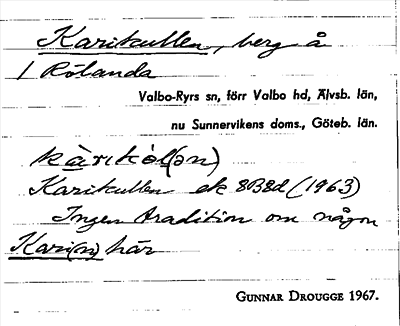 Karikullen, berg å
1 Rölanda
Valbo-Ryrs sn, förr Valbo hd, Älvsb. län,
nu Sunnervikens doms., Göteb. län.
kàrikól(ən)
Karikullen ek 8B8d (1963)
Ingen tradition om någon
Kari(n) här
GUNNAR DROUGGE 1967.